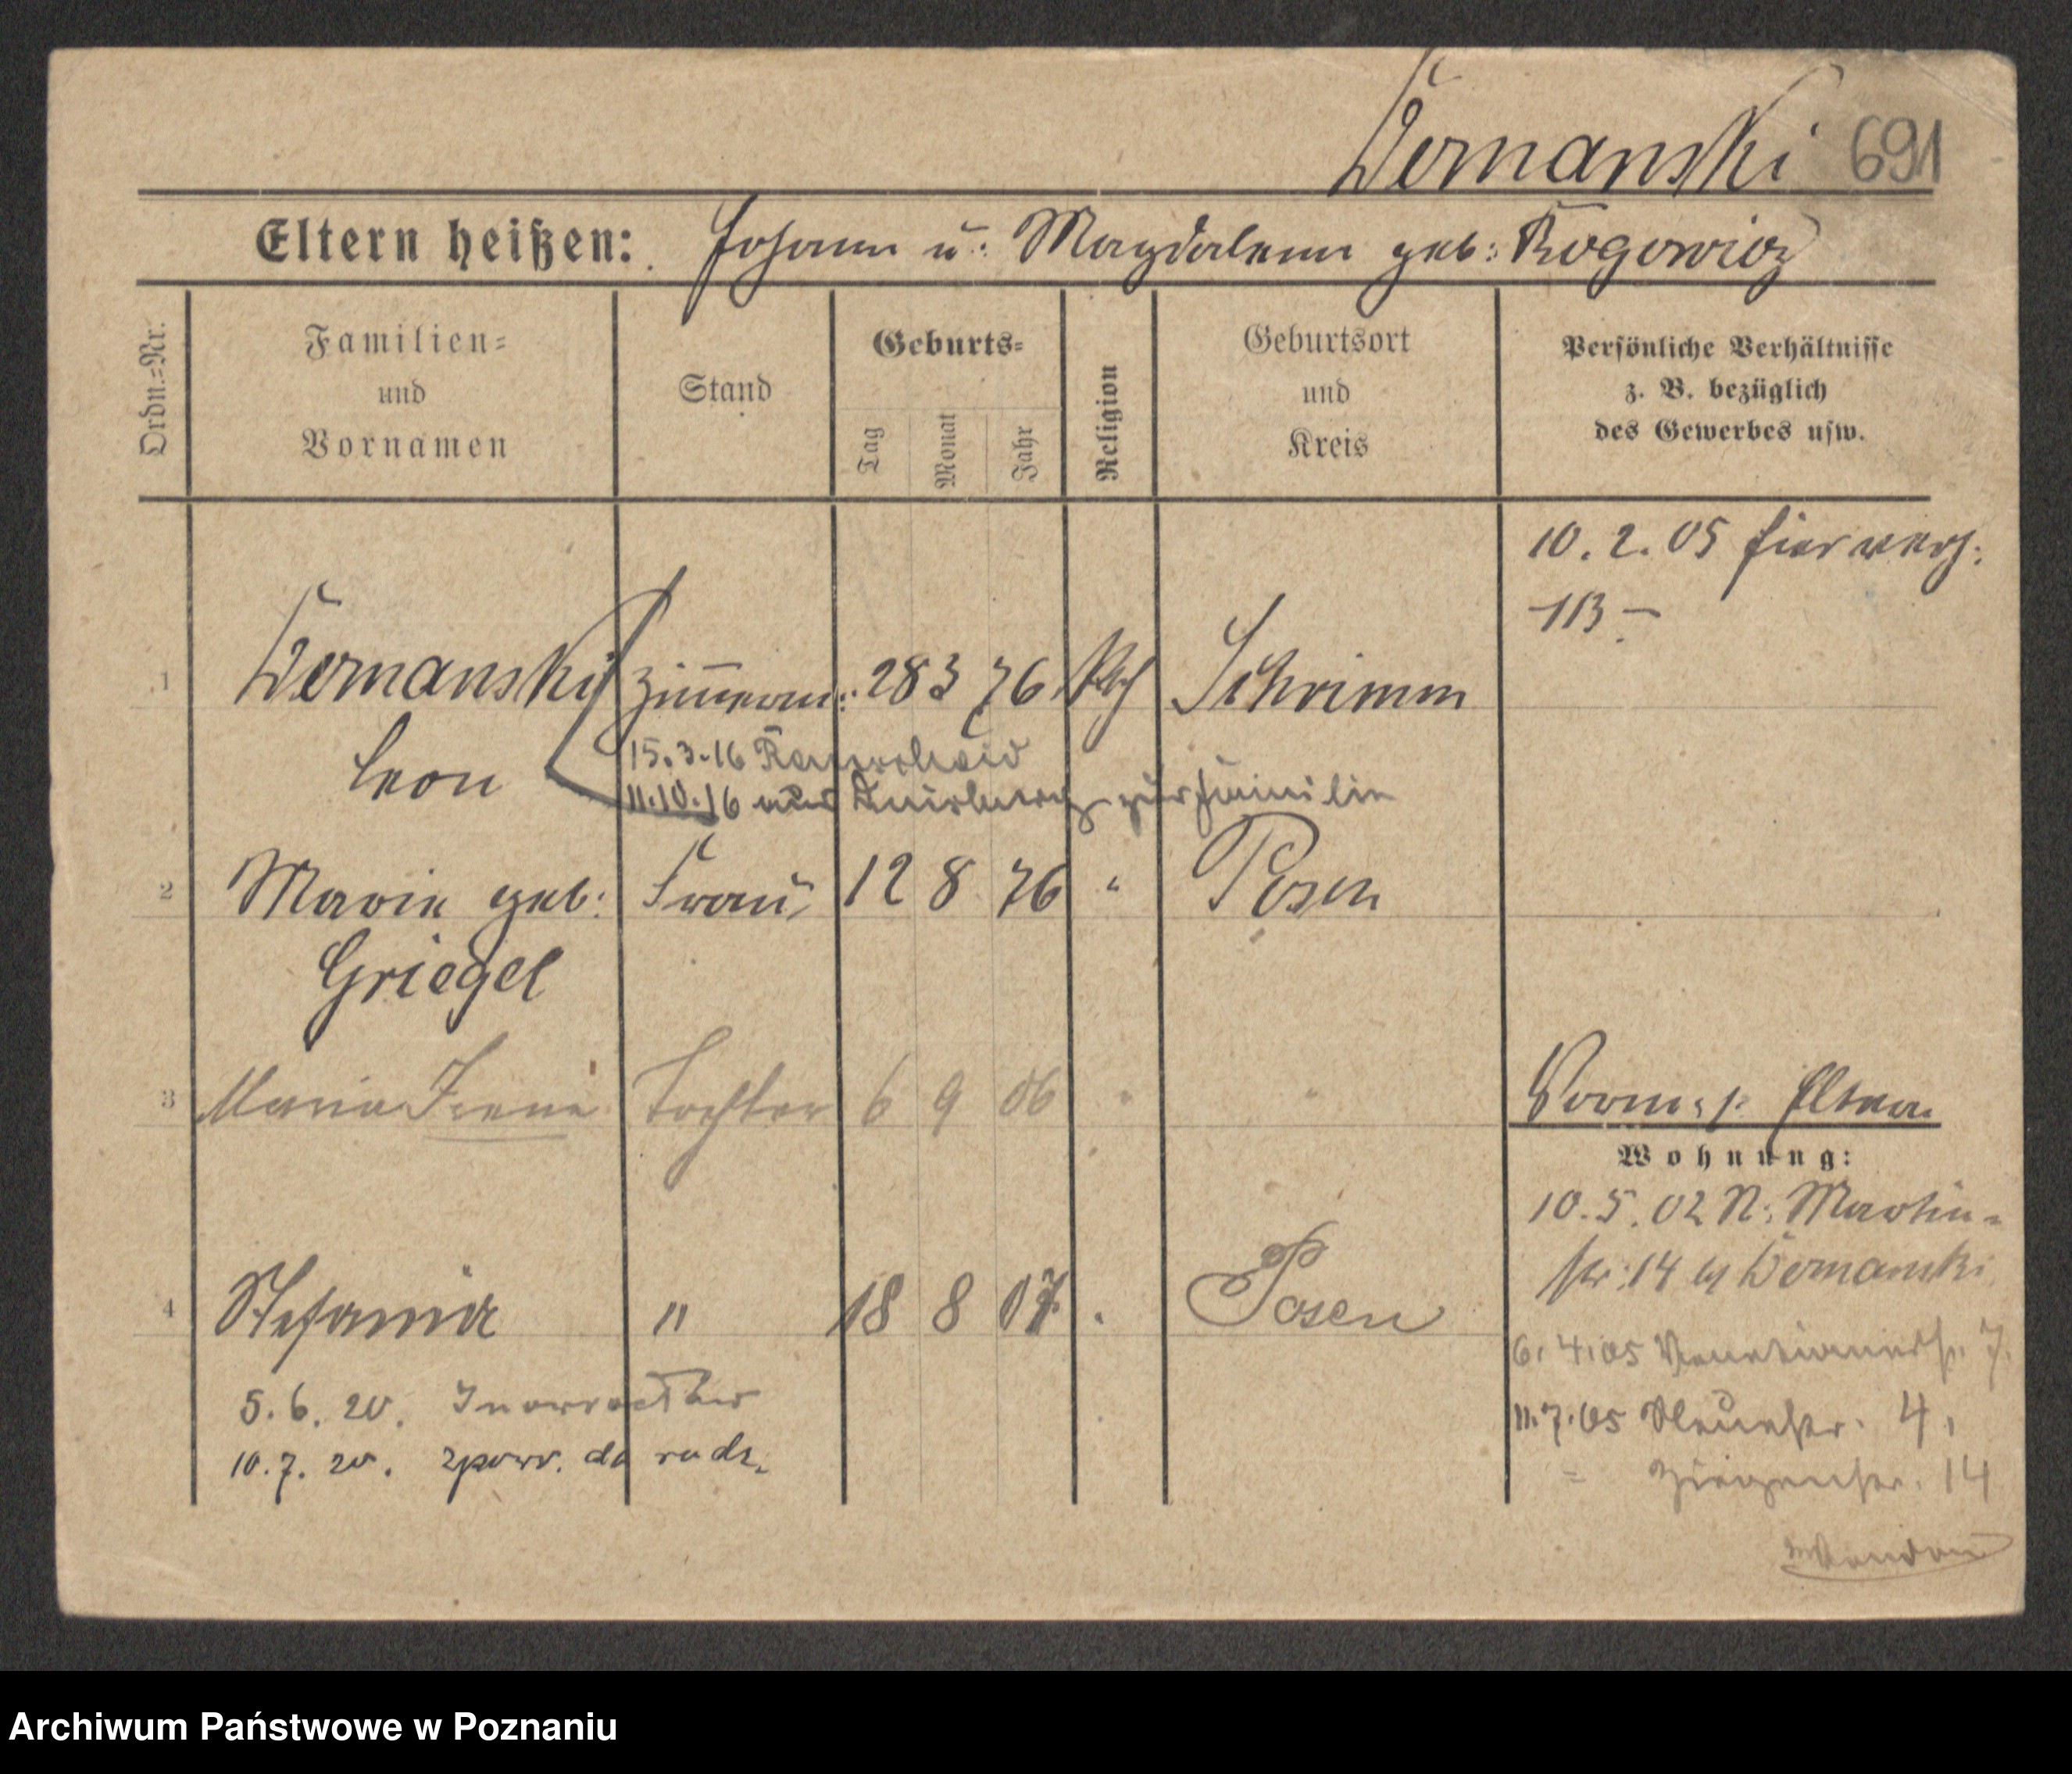 Dernanski 691
Eltern heißen: Johann u. Magdalena geb: Rogowicz
Ordn.=Nr.
Familien=
und
Vornamen
Stand
Geburts=
Tag
Monat
Jahr
Religion
Geburtsort
und
Kreis
Persönliche Verhältnisse
z. B. bezüglich
des Gewerbes usw.
10. 2. 05 hier verh.
113 –
1 Dernanski Zimmerm: 28 3 76 kth Schrimm
Leon
15.3.16
11.10.16 aus Duisburg zur Familie
2 Marie geb: Frau 12 8 76 " Posen
Griegel
3 Maria Irene Tochter 6 9 06 " "
Eltern
Wohnung:
10. 5. 02 N: Martin=
str: 14 Dernanski
4 Stefania " 18 8 07 . Posen
6. 4. 05 Venetianerstr. 7.
5. 6. 20. Inowrocław
11. 7. 05 Neuestr. 4,
10. 7. 20. zpowr. do rodz.
= Ziegenstr. 14
Archiwum Państwowe w Poznaniu